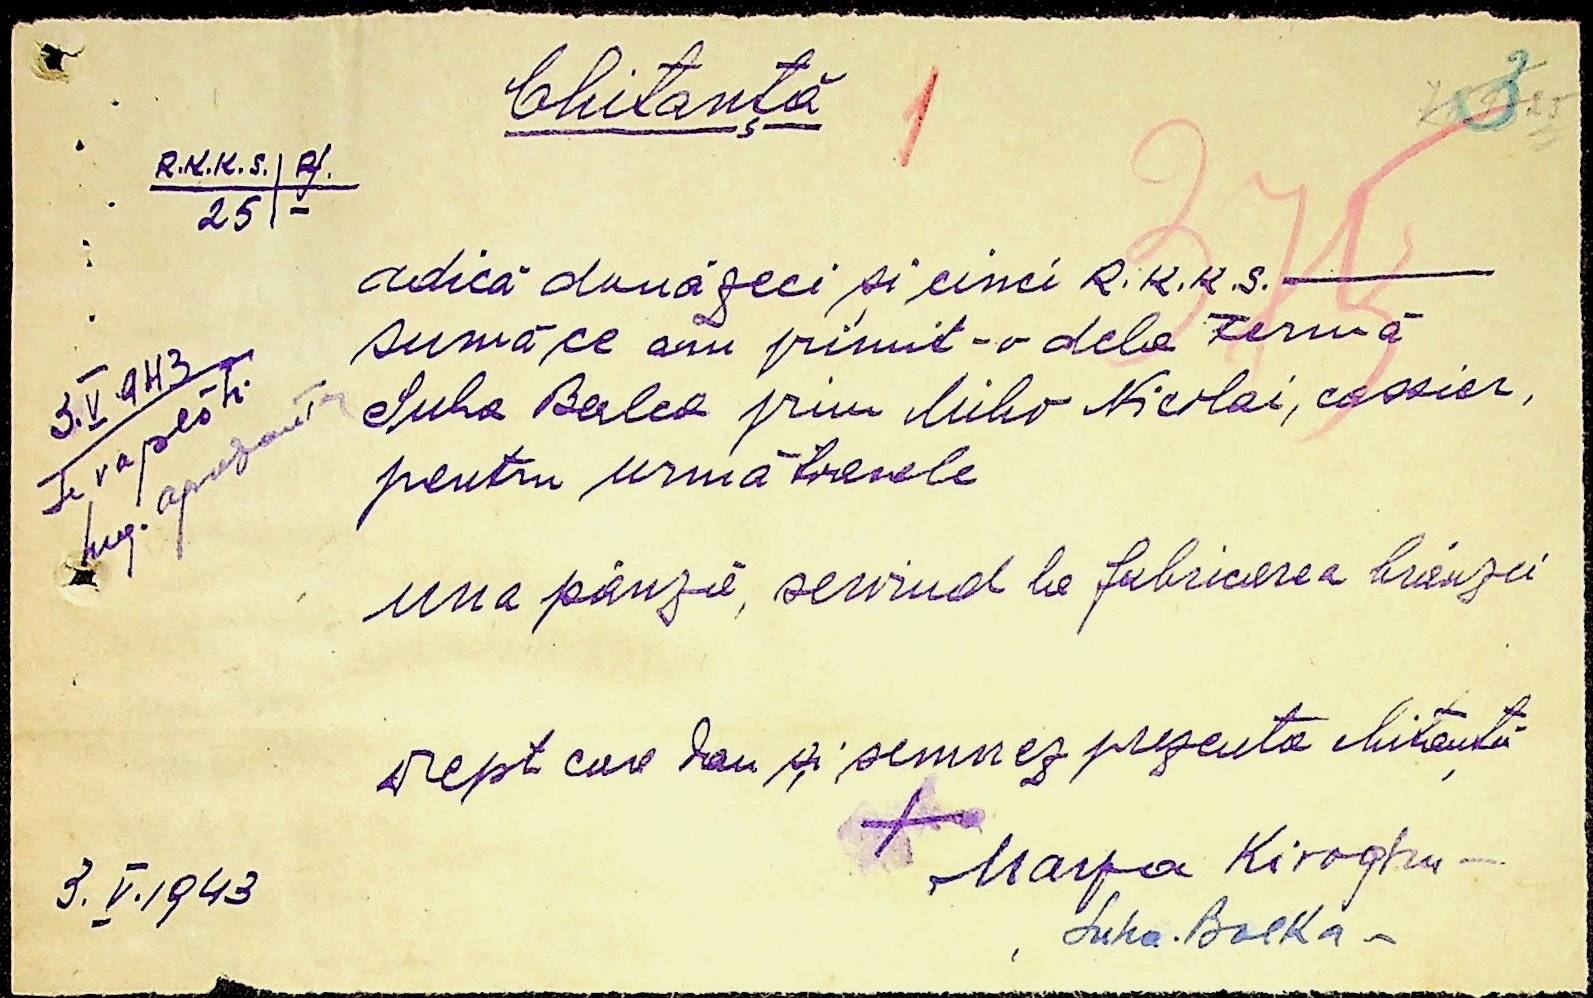 Chitanță
1
3
R.K.K.S. | Rf.
25 | -
adică douăzeci și cinci R.K.K.S.
suma ce am primit-o dela Fermă
Suha Balca prin Miho Nicolai, cassier,
pentru următoarele
3.V.943
Se va plăti
Ing.
una pânză, servind la fabricarea brânzei
Drept care dau și semnez prezenta chitanță
+
Marfa Kiroglu
Suha-Balka
3.V.1943